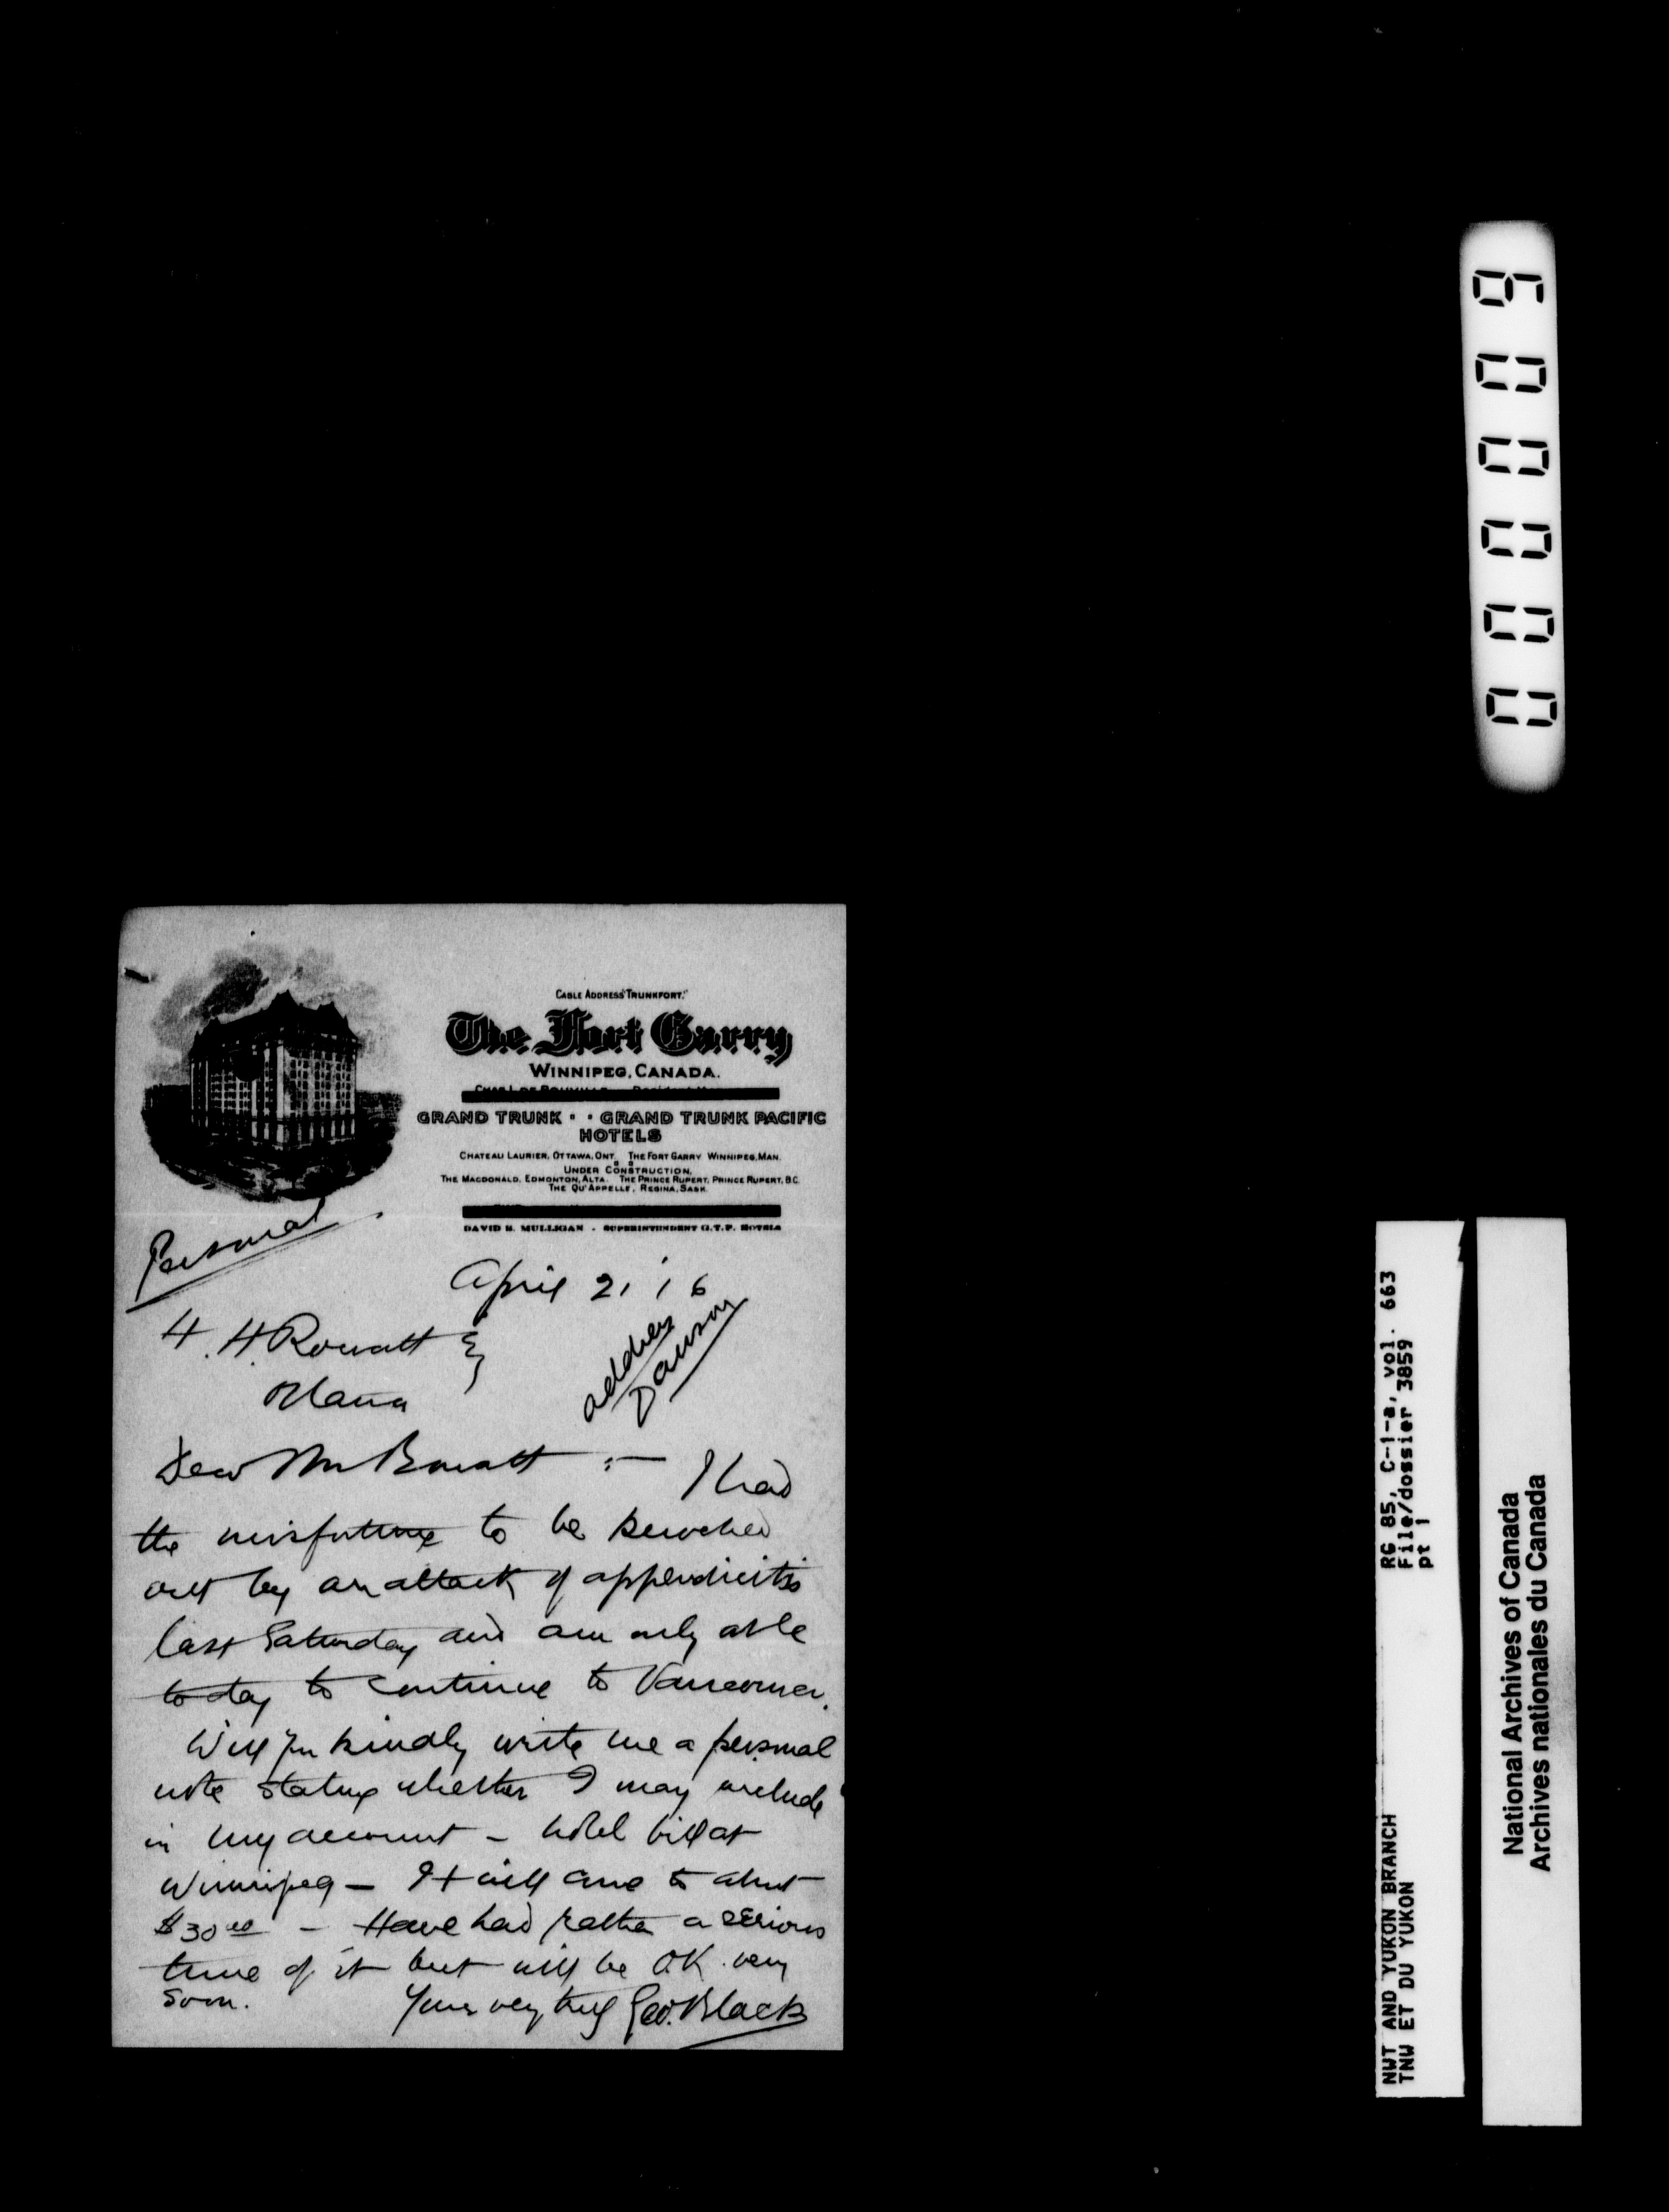 CABLE ADDRESS "TRUNKFORT."
The Fort Garry
WINNIPEG, CANADA.
GRAND TRUNK · · GRAND TRUNK PACIFIC
HOTELS
CHATEAU LAURIER, OTTAWA, ONT. THE FORT GARRY WINNIPEG, MAN.
UNDER CONSTRUCTION,
THE MACDONALD, EDMONTON, ALTA. THE PRINCE RUPERT, PRINCE RUPERT, B.C.
THE QU'APPELLE, REGINA, SASK.
DAVID B. MULLIGAN - SUPERINTENDENT G.T.P. HOTELS
Personal
April 21 '16
H. H. Rowatt
Ottawa
address
Dawson
Dear Mr Rowatt :— I had
the misfortune to be knocked
out by an attack of appendicitis
last Saturday and am only able
to day to continue to Vancouver.
Will you kindly write me a personal
note stating whether I may include
in my account – hotel bill at
Winnipeg – It will come to about
$30.00 – Have had rather a serious
time of it but will be O.K. very
soon. Yours very truly Geo. Black
000009
RG 85, C-1-a, vol. 663
File/dossier 3859
pt 1
NWT AND YUKON BRANCH
TNW ET DU YUKON
National Archives of Canada
Archives nationales du Canada